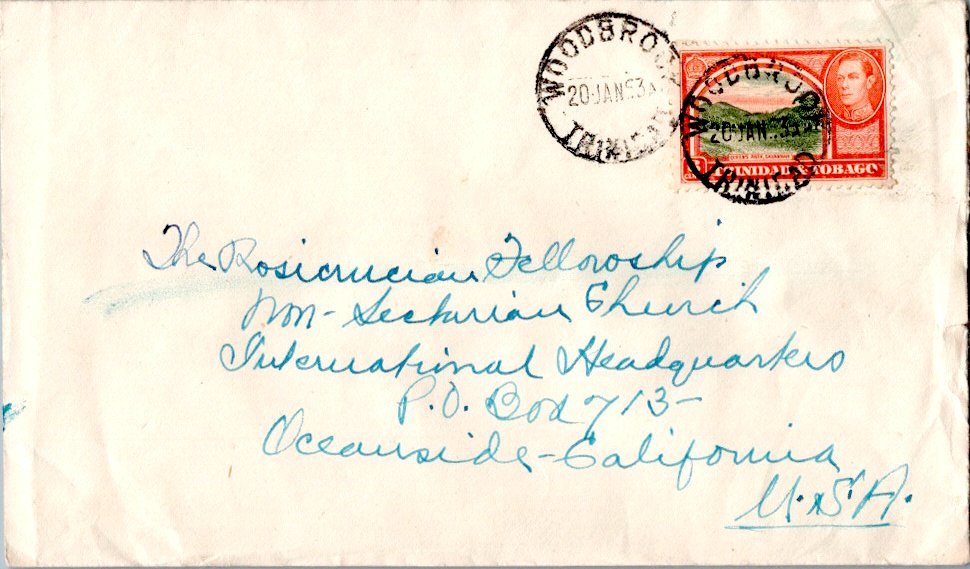 WOODBROOK
20 JAN 53
TRINIDAD
WOODBROOK
20 JAN 53
TRINIDAD
TRINIDAD & TOBAGO
The Rosicrucian Fellowship
Non-Sectarian Church
International Headquarters
P.O. Box 713-
Oceanside-California
U.S.A.